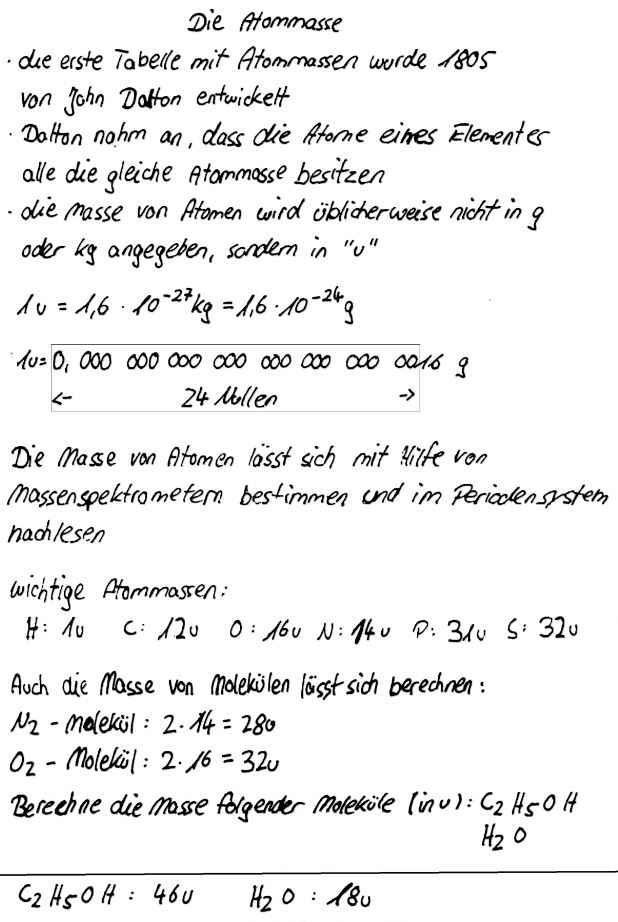 Die Atommasse
· die erste Tabelle mit Atommassen wurde 1805
von John Dalton entwickelt
· Dalton nahm an, dass die Atome eines Elementes
alle die gleiche Atommasse besitzen
· die Masse von Atomen wird üblicherweise nicht in g
oder kg angegeben, sondern in "u"
1u = 1,6 · 10⁻²⁷kg = 1,6 · 10⁻²⁴g
1u= 0, 000 000 000 000 000 000 000 0016 g
<- 24 Nullen ->
Die Masse von Atomen lässt sich mit Hilfe von
Massenspektrometern bestimmen und im Periodensystem
nachlesen
wichtige Atommassen:
H: 1u C: 12u O: 16u N: 14u P: 31u S: 32u
Auch die Masse von Molekülen lässt sich berechnen:
N2 - Molekül: 2·14 = 28u
O2 - Molekül: 2·16 = 32u
Berechne die Masse folgender Moleküle (in u): C2H5OH
H2O
C2H5OH: 46u H2O: 18u